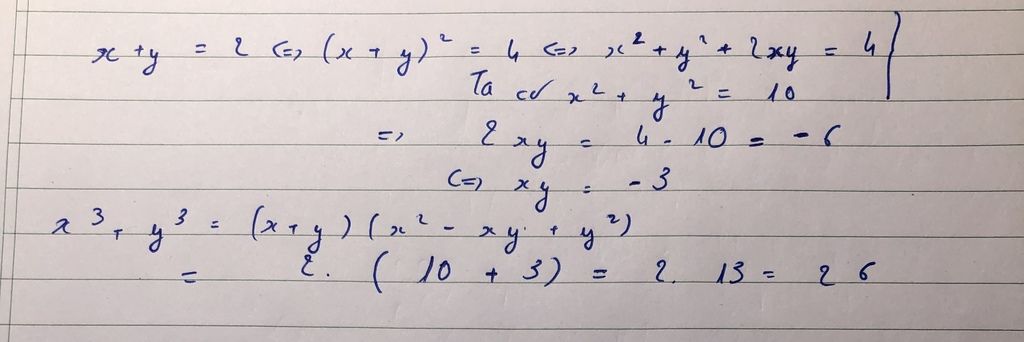 x + y = 2 <=> (x + y)² = 4 <=> x² + y² + 2xy = 4
Ta có x² + y² = 10
=> 2xy = 4 - 10 = - 6
<=> xy = - 3
x³ + y³ = (x + y)(x² - xy + y²)
= 2. (10 + 3) = 2. 13 = 26